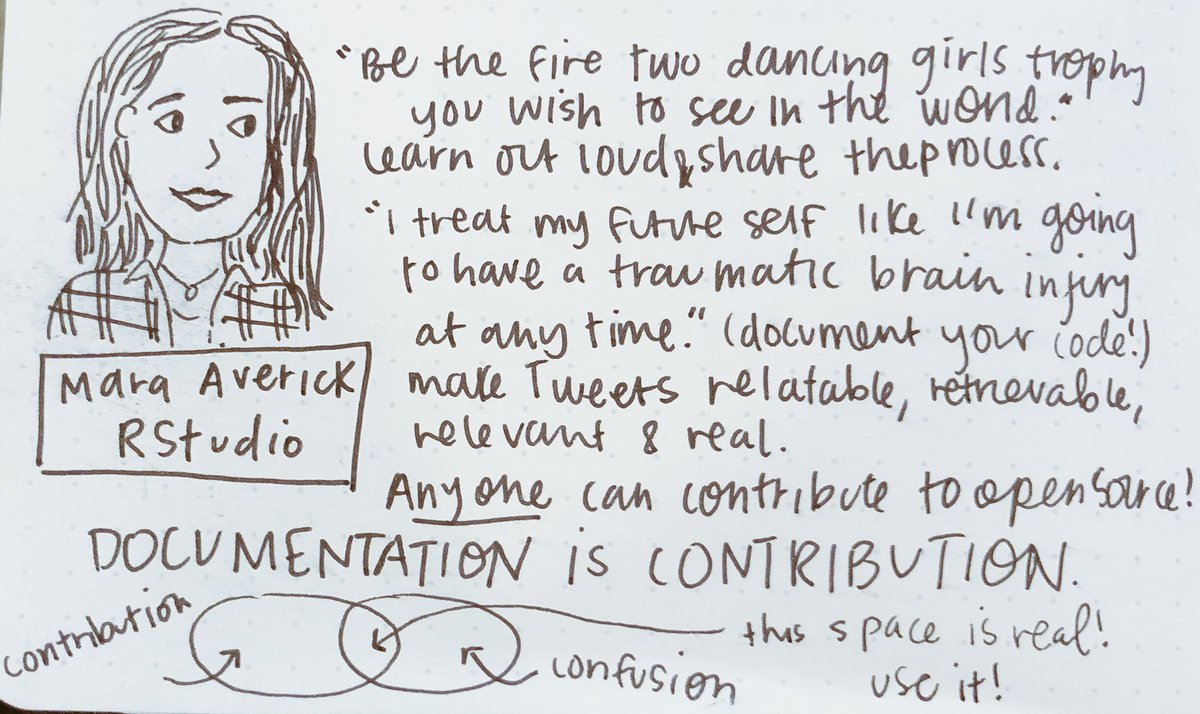 "Be the fire two dancing girls trophy
you wish to see in the world."
Learn out loud & share the process.
"I treat my future self like I'm going
to have a traumatic brain injury
at any time." (document your code!)
make Tweets relatable, retrievable,
relevant & real.
Mara Averick
RStudio
Anyone can contribute to open source!
DOCUMENTATION is CONTRIBUTION.
contribution
this space is real!
use it!
confusion